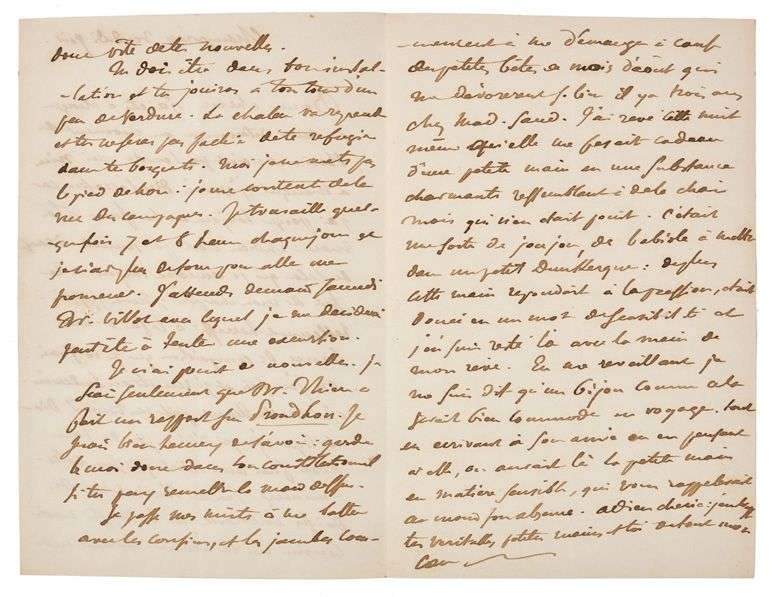 donc vite de tes nouvelles.
Tu dois être dans ton instal-
-lation et tu jouiras à ton tour d'un
peu de verdure. La chaleur va reprendre
et tu ne seras pas fachée de te refugier
dans tes bosquets. Moi je ne mets pas
le pied dehors : je me contente de la
vue des campagnes. Je travaille quel-
quefois 7 et 8 heures chaque jour et
je n'ai plus de force pour aller me
promener. J'attends demain Jeudi
Mr. Villot avec lequel je me deciderai
peut être à tenter une excursion.
Je n'ai point de nouvelles. Je
sais seulement que Mr. Thiers a
fait un rapport sur Proudhon. Je
serais bien heureux de l'avoir : garde
le moi donc dans ton constitutionnel
si tu peux remettre la main dessus.
Je passe mes nuits à me battre
avec les cousins, et les jambes com-
-mencent à me démanger à cause
des petites bêtes du mois d'août qui
me dévorerent si bien il y a trois ans
chez Mad. Sand. J'ai revé cette nuit
meme qu'elle me fesait cadeau
d'une petite main en une substance
charmante ressemblant à de la chair
mais qui n'en était point. C'était
une sorte de joujou, de babiole à mettre
dans un petit Dunkerque : de plus
cette main repondait à la pression, était
douée en un mot de sensibilité et
j'en suis resté là avec la main de
mon reve. En me reveillant je
me suis dit qu'un bijou comme cela
serait bien commode en voyage, tout
en ecrivant à son amie ou en pensant
à elle, on aurait là la petite main
en matière sensible, qui vous rappellerait
au moins son absence. adieu cherie : j'embrasse
tes veritables petites mains et toi de tout mon
cœur